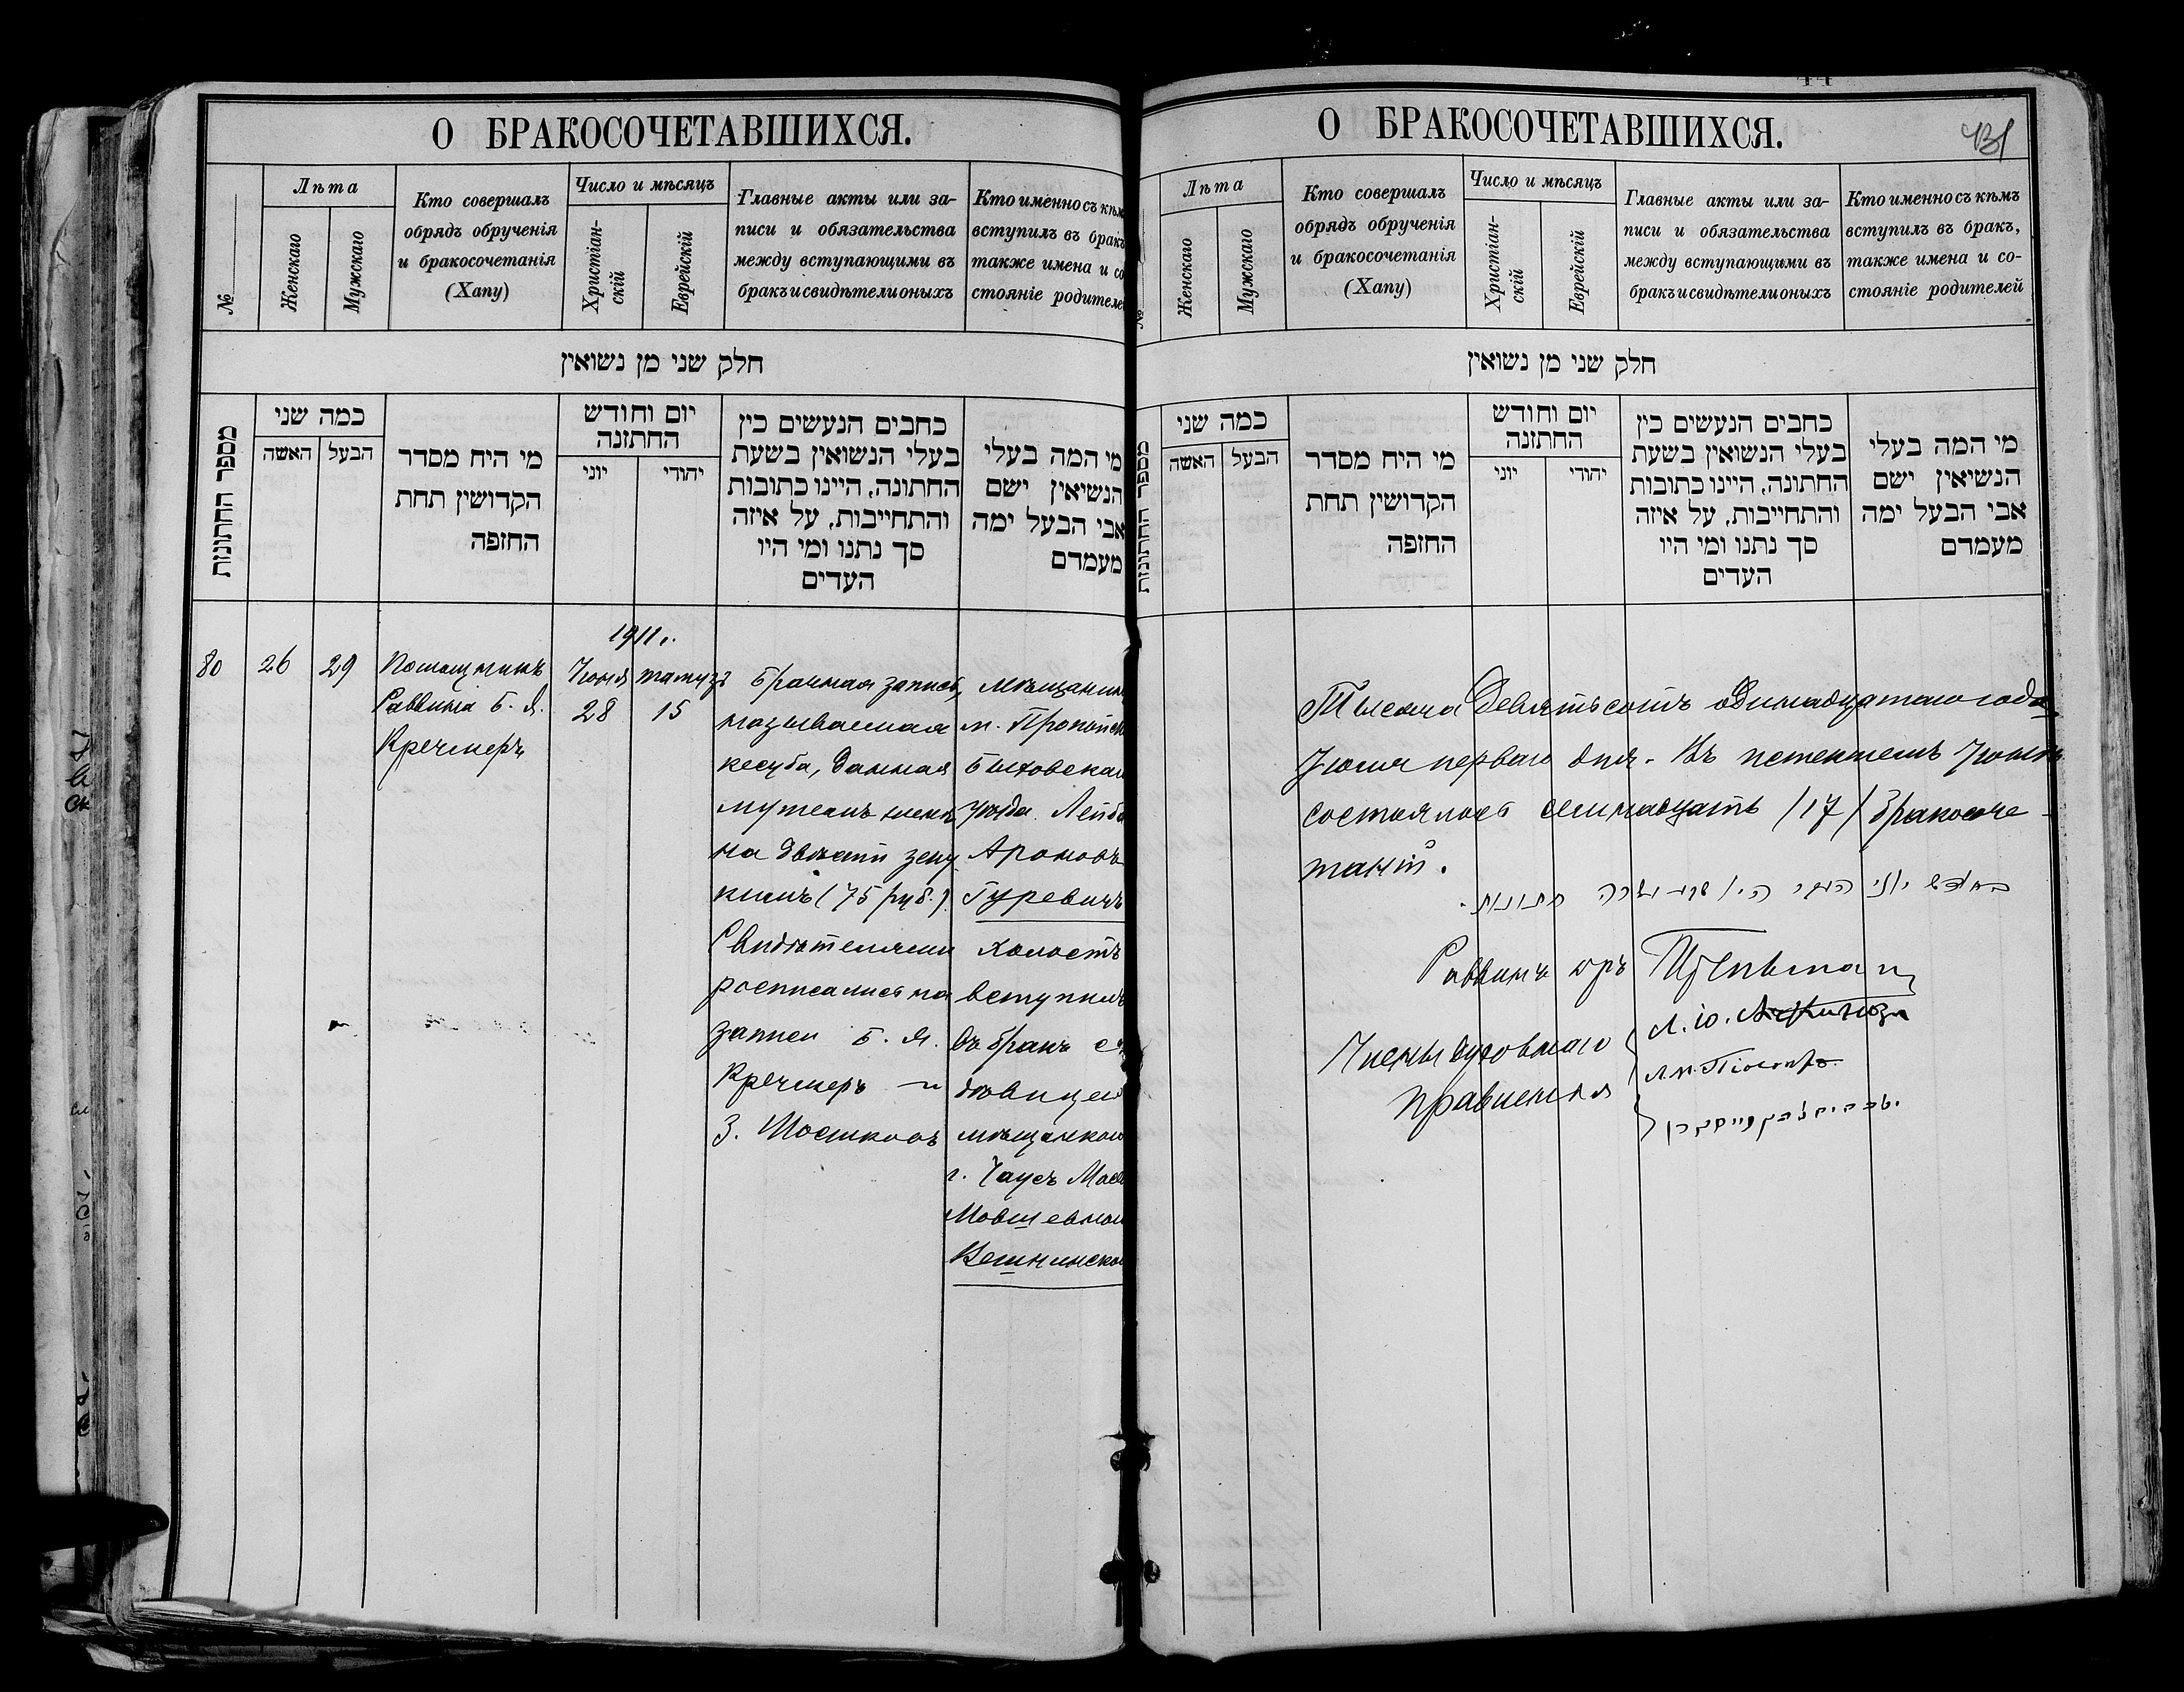 О БРАКОСОЧЕТАВШИХСЯ.
№
Лѣта
Женскаго
Мужскаго
Кто совершалъ
обрядъ обрученія
и бракосочетанія
(Хапу)
Число и мѣсяцъ
Христіан-
скій
Еврейскій
Главные акты или за-
писи и обязательства
между вступающими въ
бракъ и свидѣтели оныхъ
Кто именно съ кѣм
вступилъ въ брак
также имена и со
стояніе родителе
חלק שני מן נשואין
מספר החתונות
כמה שני
האשה
הבעל
מי היח מסדר
הקדושין תחת
החופה
יום וחודש
החתונה
יוני
יהודי
כחבים הנעשים כין
בעלי הנשואין בשעת
החתונה, היינו כתובות
והתחייבות, על איזה
סך נתנו ומי היו
העדים
מי המה בעלי
הנשיאין ישם
אבי הבעל ימה
מעמדם
1911 г.
80
26
29
Помощникъ
Раввина Б. Я.
Кречмеръ
Іюня
28
тамузъ
15
Брачная запись,
называемая
кесуба, данная
мужемъ женѣ
на двѣсти зеху
кимъ (75 руб.)
Свидѣтелями
росписались на
записи Б. Я.
Кречмеръ и
З. Мошковъ
мѣщанин
м. Пропойск
Быховскаг
уѣзда Лейба
Ароновъ
Гуревичъ
холостъ
вступилъ
въ бракъ съ
дѣвицею
мѣщанкою
г. Чаусъ
Мовшевной
Вешнинской
О БРАКОСОЧЕТАВШИХСЯ.
431
№
Лѣта
Женскаго
Мужскаго
Кто совершалъ
обрядъ обрученія
и бракосочетанія
(Хапу)
Число и мѣсяцъ
Христіан-
скій
Еврейскій
Главные акты или за-
писи и обязательства
между вступающими въ
бракъ и свидѣтели оныхъ
Кто именно съ кѣмъ
вступилъ въ бракъ,
также имена и со-
стояніе родителей
חלק שני מן נשואין
מספר החתונות
כמה שני
האשה
הבעל
מי היח מסדר
הקדושין תחת
החופה
יום וחודש
החתונה
יוני
יהודי
כחבים הנעשים כין
בעלי הנשואין בשעת
החתונה, היינו כתובות
והתחייבות, על איזה
סך נתנו ומי היו
העדים
מי המה בעלי
הנשיאין ישם
אבי הבעל ימה
מעמדם
Тысяча девятьсотъ одинадцатаго года
Іюля перваго дня. Въ истекшемъ Іюнѣ
состоялось семнадцать (17) бракосоче-
таній.
בחודש יוני היו שבע עשרה חתונות.
Раввинъ
Члены духовнаго
правленія